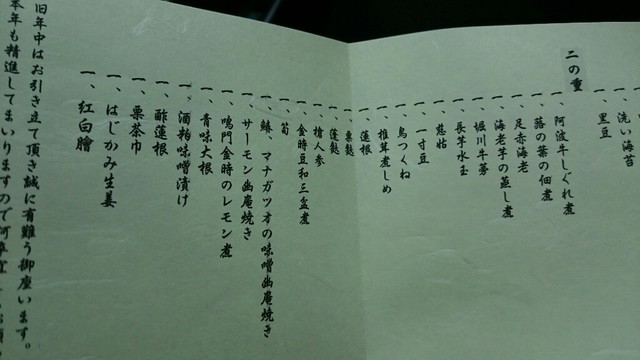 一、洗い海苔
一、黒豆
二の重
一、阿波牛しぐれ煮
一、蕗の葉の佃煮
一、足赤海老
一、海老芋の蒸し煮
一、堀川牛蒡
一、長芋水玉
一、慈姑
一、一寸豆
一、鳥つくね
一、椎茸煮しめ
一、蓮根
一、粟麩
一、蓬麩
一、梅人参
一、金時豆和三盆煮
一、筍
一、鰆、マナガツオの味噌幽庵焼き
一、サーモン幽庵焼き
一、鳴門金時のレモン煮
一、青味大根
一、酒粕味噌漬け
一、酢蓮根
一、栗茶巾
一、はじかみ生姜
一、紅白膾
旧年中はお引き立て頂き誠に有難う御座います。
本年も精進してまいりますので何卒